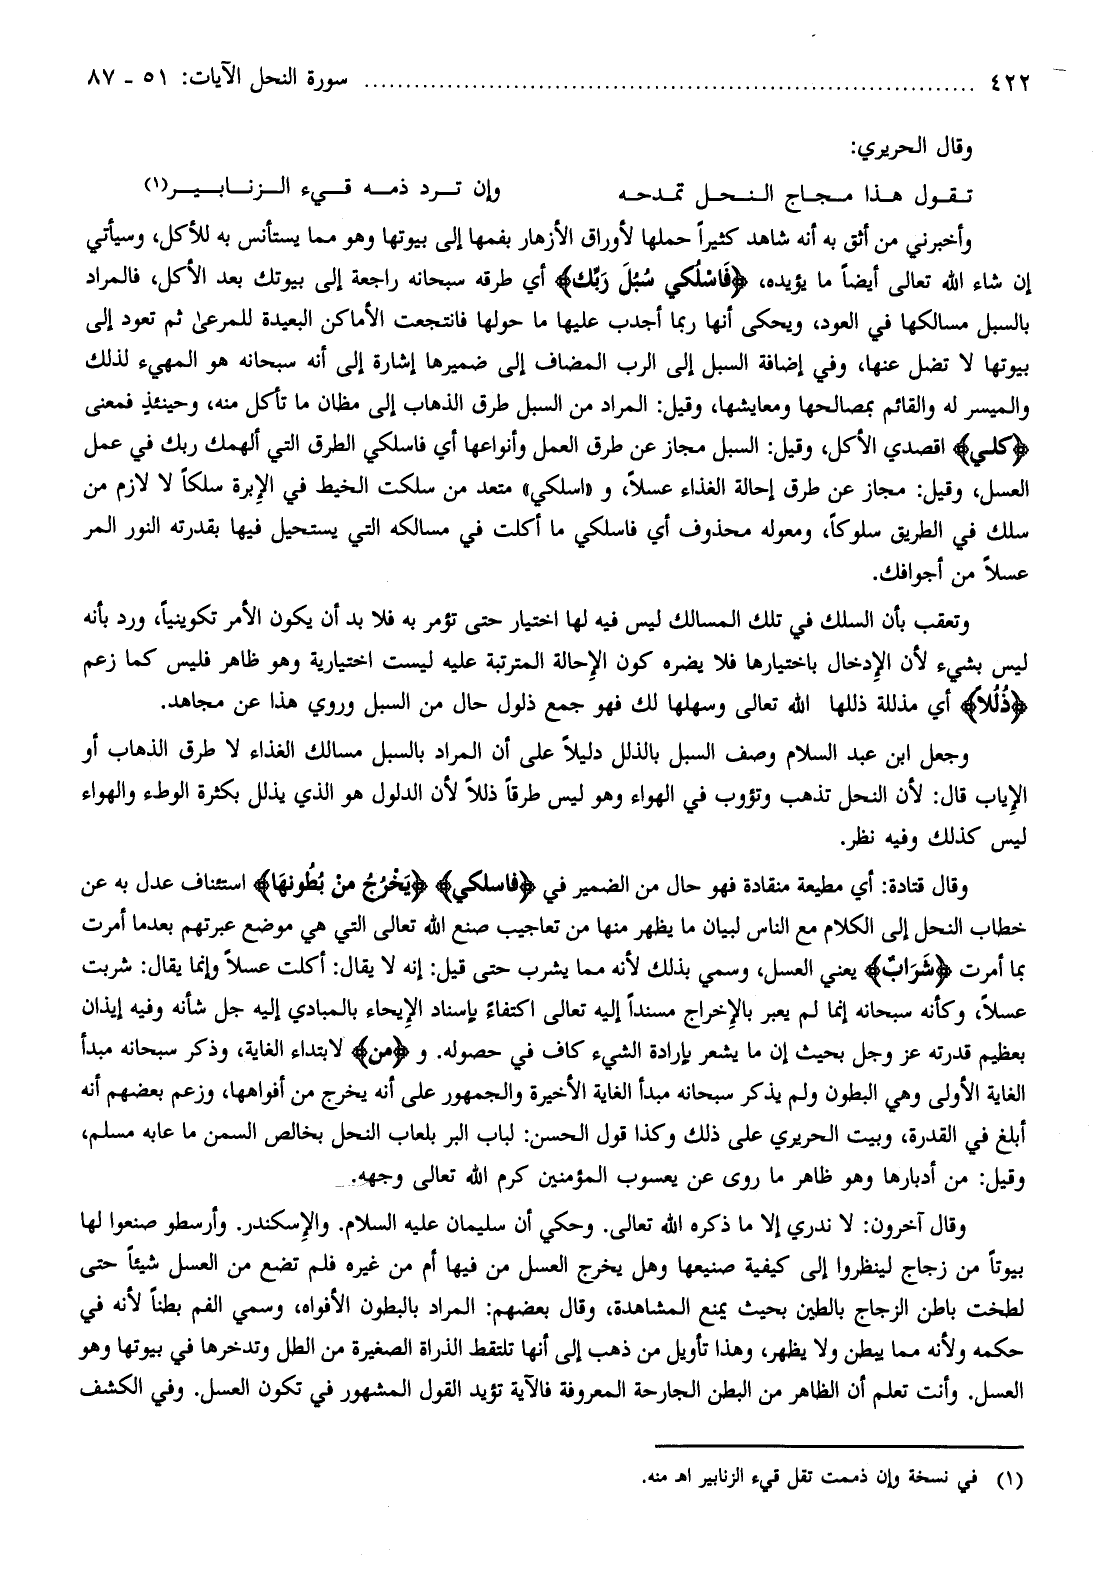 ٤٢٢ ........................ سورة النحل الآيات: ٥١ - ٨٧
وقال الحريري:
تقول هذا مجاج النحل تمدحه وإن ترد ذمه قيء الزنابير(١)
وأخبرني من أثق به أنه شاهد كثيراً حملها لأوراق الأزهار بفمها إلى بيوتها وهو مما يستأنس به للأكل، وسيأتي
إن شاء الله تعالى أيضاً ما يؤيده، ﴿فَاسْلُكي سُبُلَ رَبِّك﴾ أي طرقه سبحانه راجعة إلى بيوتك بعد الأكل، فالمراد
بالسبل مسالكها في العود، ويحكى أنها ربما أجدب عليها ما حولها فانتجعت الأماكن البعيدة للمرعىٰ ثم تعود إلى
بيوتها لا تضل عنها، وفي إضافة السبل إلى الرب المضاف إلى ضميرها إشارة إلى أنه سبحانه هو المهيء لذلك
والميسر له والقائم بمصالحها ومعايشها، وقيل: المراد من السبل طرق الذهاب إلى مظان ما تأكل منه، وحينئذٍ فمعنى
﴿كلي﴾ اقصدي الأكل، وقيل: السبل مجاز عن طرق العمل وأنواعها أي فاسلكي الطرق التي ألهمك ربك في عمل
العسل، وقيل: مجاز عن طرق إحالة الغذاء عسلاً، و «اسلكي» متعد من سلكت الخيط في الإبرة سلكاً لا لازم من
سلك في الطريق سلوكاً، ومعوله محذوف أي فاسلكي ما أكلت في مسالكه التي يستحيل فيها بقدرته النور المر
عسلاً من أجوافك.
وتعقب بأن السلك في تلك المسالك ليس فيه لها اختيار حتى تؤمر به فلا بد أن يكون الأمر تكوينياً، ورد بأنه
ليس بشيء لأن الإدخال باختيارها فلا يضره كون الإحالة المترتبة عليه ليست اختيارية وهو ظاهر فليس كما زعم
﴿ذُلُلاً﴾ أي مذللة ذللها الله تعالى وسهلها لك فهو جمع ذلول حال من السبل وروي هذا عن مجاهد.
وجعل ابن عبد السلام وصف السبل بالذلل دليلاً على أن المراد بالسبل مسالك الغذاء لا طرق الذهاب أو
الإياب قال: لأن النحل تذهب وتؤوب في الهواء وهو ليس طرقاً ذللاً لأن الدلول هو الذي يذلل بكثرة الوطء والهواء
ليس كذلك وفيه نظر.
وقال قتادة: أي مطيعة منقادة فهو حال من الضمير في ﴿فاسلكي﴾ ﴿يَخْرُجُ منْ بُطُونهَا﴾ استئناف عدل به عن
خطاب النحل إلى الكلام مع الناس لبيان ما يظهر منها من تعاجيب صنع الله تعالى التي هي موضع عبرتهم بعدما أمرت
بما أمرت ﴿شَرَابٌ﴾ يعني العسل، وسمي بذلك لأنه مما يشرب حتى قيل: إنه لا يقال: أكلت عسلاً وإنما يقال: شربت
عسلاً، وكأنه سبحانه إنما لم يعبر بالإخراج مسنداً إليه تعالى اكتفاءً بإسناد الإيحاء بالمبادي إليه جل شأنه وفيه إيذان
بعظيم قدرته عز وجل بحيث إن ما يشعر بإرادة الشيء كاف في حصوله. و ﴿من﴾ لابتداء الغاية، وذكر سبحانه مبدأ
الغاية الأولى وهي البطون ولم يذكر سبحانه مبدأ الغاية الأخيرة والجمهور على أنه يخرج من أفواهها، وزعم بعضهم أنه
أبلغ في القدرة، وبيت الحريري على ذلك وكذا قول الحسن: لباب البر بلعاب النحل بخالص السمن ما عابه مسلم،
وقيل: من أدبارها وهو ظاهر ما روى عن يعسوب المؤمنين كرم الله تعالى وجهه.
وقال آخرون: لا ندري إلا ما ذكره الله تعالى. وحكي أن سليمان عليه السلام. والإسكندر. وأرسطو صنعوا لها
بيوتاً من زجاج لينظروا إلى كيفية صنيعها وهل يخرج العسل من فيها أم من غيره فلم تضع من العسل شيئاً حتى
لطخت باطن الزجاج بالطين بحيث يمنع المشاهدة، وقال بعضهم: المراد بالبطون الأفواه، وسمي الفم بطناً لأنه في
حكمه ولأنه مما يبطن ولا يظهر، وهذا تأويل من ذهب إلى أنها تلتقط الذراة الصغيرة من الطل وتدخرها في بيوتها وهو
العسل. وأنت تعلم أن الظاهر من البطن الجارحة المعروفة فالآية تؤيد القول المشهور في تكون العسل. وفي الكشف
(١) في نسخة وإن ذممت تقل قيء الزنابير اهـ منه.